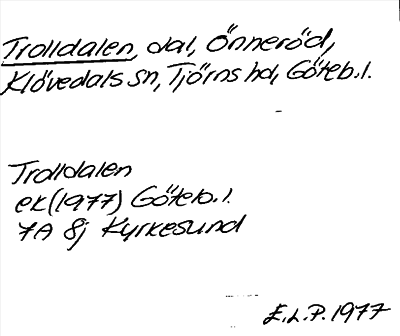 Trolldalen, dal, Önneröd,
Klövedals sn, Tjörns hd, Göteb. l.
Trolldalen
ek (1977) Göteb. l.
7A 8j Kyrkesund
E.L.P. 1977